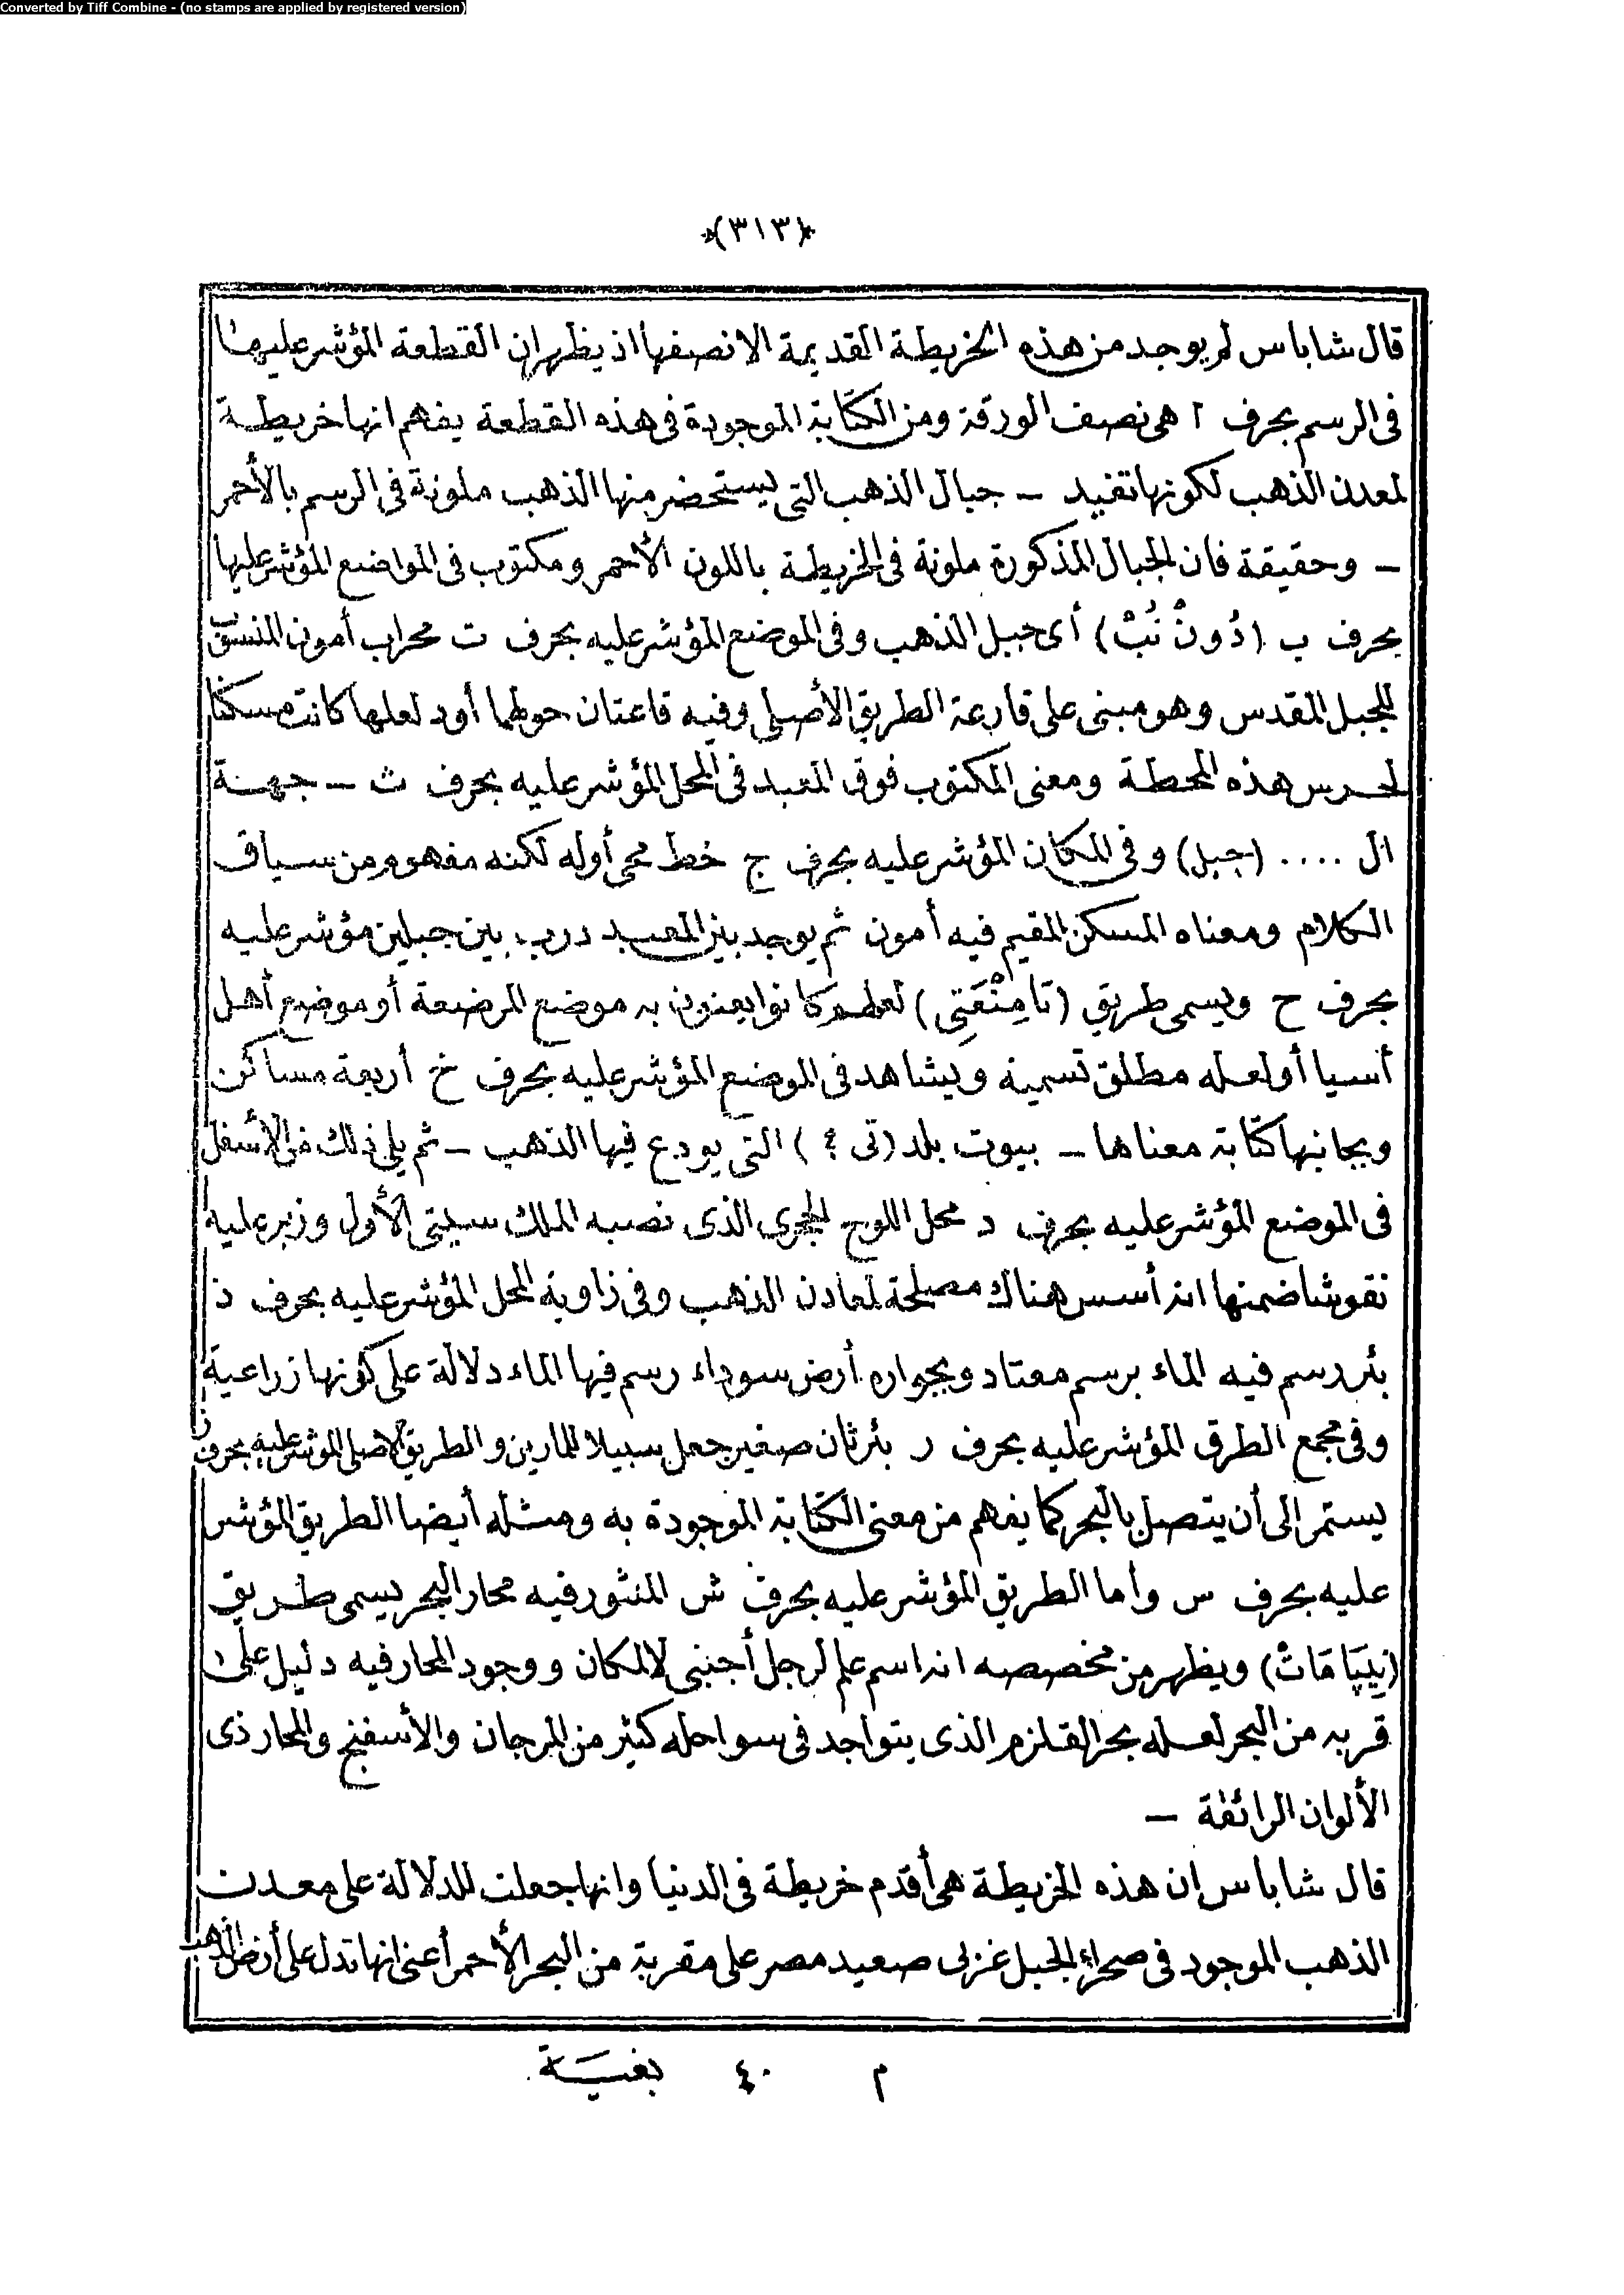 Converted by Tiff Combine - (no stamps are applied by registered version)
*(٣١٣)*
قال شاباس لم يوجد من هذه الخريطة القديمة الا نصفها اذ يظهر ان القطعة المؤشر عليها
فى الرسم بحرف ا هى نصف الورقة ومن الكتابة الموجودة فى هذه القطعة يفهم انها خريطة
لمعدن الذهب لكونها تفيد – جبال الذهب التى يستحضر منها الذهب ملونة فى الرسم بالأحمر
– وحقيقة فان الجبال المذكورة ملونة فى الخريطة باللون الأحمر ومكتوب فى المواضع المؤشر عليها
بحرف ب (دُونْ نُبْ) أى جبل الذهب وفى الموضع المؤشر عليه بحرف ت محراب أمون المنسوب
للجبل المقدس وهو مبنى على قارعة الطريق الأصلى وفيه قاعتان حولهما أود لعلها كانت مسكنا
لحرس هذه المحطة ومعنى المكتوب فوق المعبد فى المحل المؤشر عليه بحرف ث – جهة
ال .... (جبل) وفى المكان المؤشر عليه بحرف ج خط محى أوله لكنه مفهوم من سياق
الكلام ومعناه المسكن المقيم فيه أمون ثم يوجد بين المعبد درب بين جبلين مؤشر عليه
بحرف ح ويسمى طريق (تَا مِنْتَعَتِى) لعلهم كانوا يعنون به موضع المرضعة أو موضع أهل
أسيا أو لعله مطلق تسمية ويشاهد فى الموضع المؤشر عليه بحرف خ أربعة مساكن
وبجانبها كتابة معناها – بيوت بلد (تى ؟) التى يودع فيها الذهب – ثم يلى ذلك من الأسفل
فى الموضع المؤشر عليه بحرف د محل اللوح الحجرى الذى نصبه الملك سيتى الأول وزبر عليه
نقوشا ضمنها انه أسس هناك مصلحة لمعادن الذهب وفى زاوية المحل المؤشر عليه بحرف ذ
بئر رسم فيه الماء برسم معتاد وبجواره أرض سوداء رسم فيها الماء دلالة على كونها زراعية
وفى مجمع الطرق المؤشر عليه بحرف ر بئر ثان صغير جعل سبيلا للمارين والطريق الاصلى المؤشر عليه بحرف ز
يستمر الى أن يتصل بالبحر كما يفهم من معنى الكتابة الموجودة به ومثله أيضا الطريق المؤشر
عليه بحرف س وأما الطريق المؤشر عليه بحرف ش المنثور فيه محار البحر يسمى طريق
(تِيپَامَاتْ) ويظهر من مخصصه انه اسم علم لرجل أجنبى لا لمكان ووجود المحار فيه دليل على
قربه من البحر لعله بحر القلزم الذى يتواجد فى سواحله كثير من المرجان والأسفنج والمحار ذى
الألوان الرائقة –
قال شاباس ان هذه الخريطة هى أقدم خريطة فى الدنيا وانها جعلت للدلالة على معدن
الذهب الموجود فى صحراء الجبل غربى صعيد مصر على مقربة من البحر الأحمر أعنى انها تدل على أرض الذهب
م ٤٠ بغية